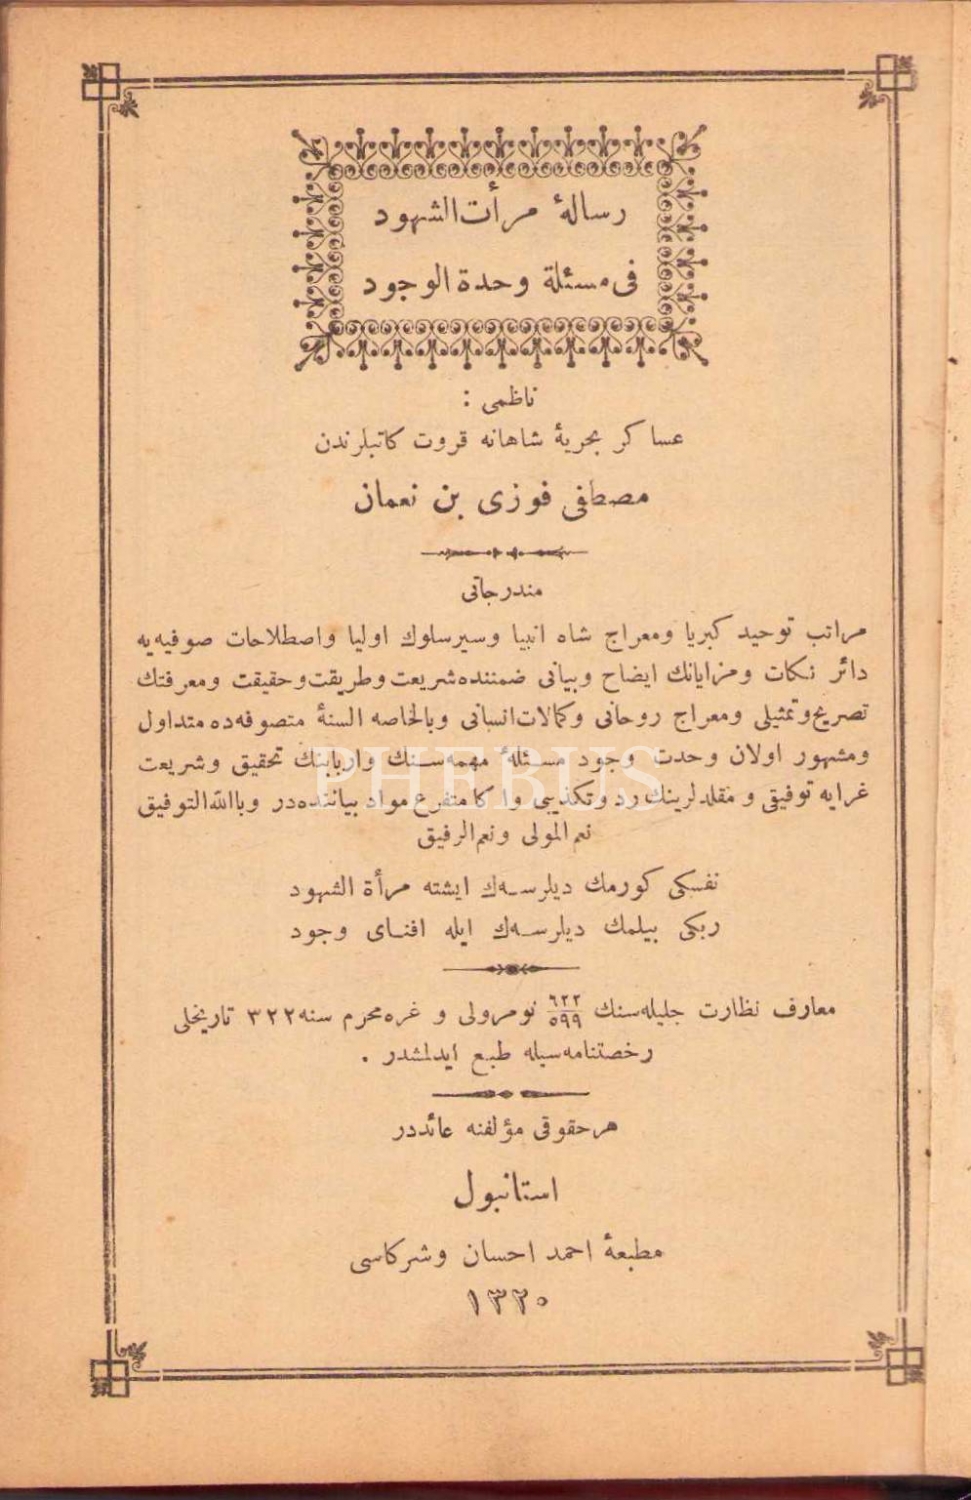 رسالهٔ مرأت الشهود
فی مسئلة وحدة الوجود
ناظمی :
عساكر بحریهٔ شاهانه قروت كاتبلرندن
مصطفی فوزی بن نعمان
مندرجاتی
مراتب توحید كبریا ومعراج شاه انبیا وسیرسلوك اولیا واصطلاحات صوفیه‌یه
دائر نكات ومزایانك ایضاح وبیانی ضمننده شریعت وطریقت وحقیقت ومعرفتك
تصریح وتمثیلی ومعراج روحانی وكمالات انسانی وبالخاصه السنهٔ متصوفه‌ده متداول
ومشهور اولان وحدت وجود مسئلهٔ مهمه‌سنك واربابنك تحقیق وشریعت
غرایه توفیقی و مقلدلرینك رد وتكذیبی واكا متفرع مواد بیاننده‌در وباالله التوفیق
نعم المولی ونعم الرفیق
نفسكی كورمك دیلرسه‌ك ایشته مرأة الشهود
ربكی بیلمك دیلرسه‌ك ایله افنای وجود
معارف نظارت جلیله‌سنك ٦٢٢/٥٩٩ نومرولی و غره محرم سنه ٣٢٢ تاریخلی
رخصتنامه‌سیله طبع ایدلمشدر .
هر حقوقی مؤلفنه عائددر
استانبول
مطبعهٔ احمد احسان وشركاسی
١٣٢٠
PHEBUS